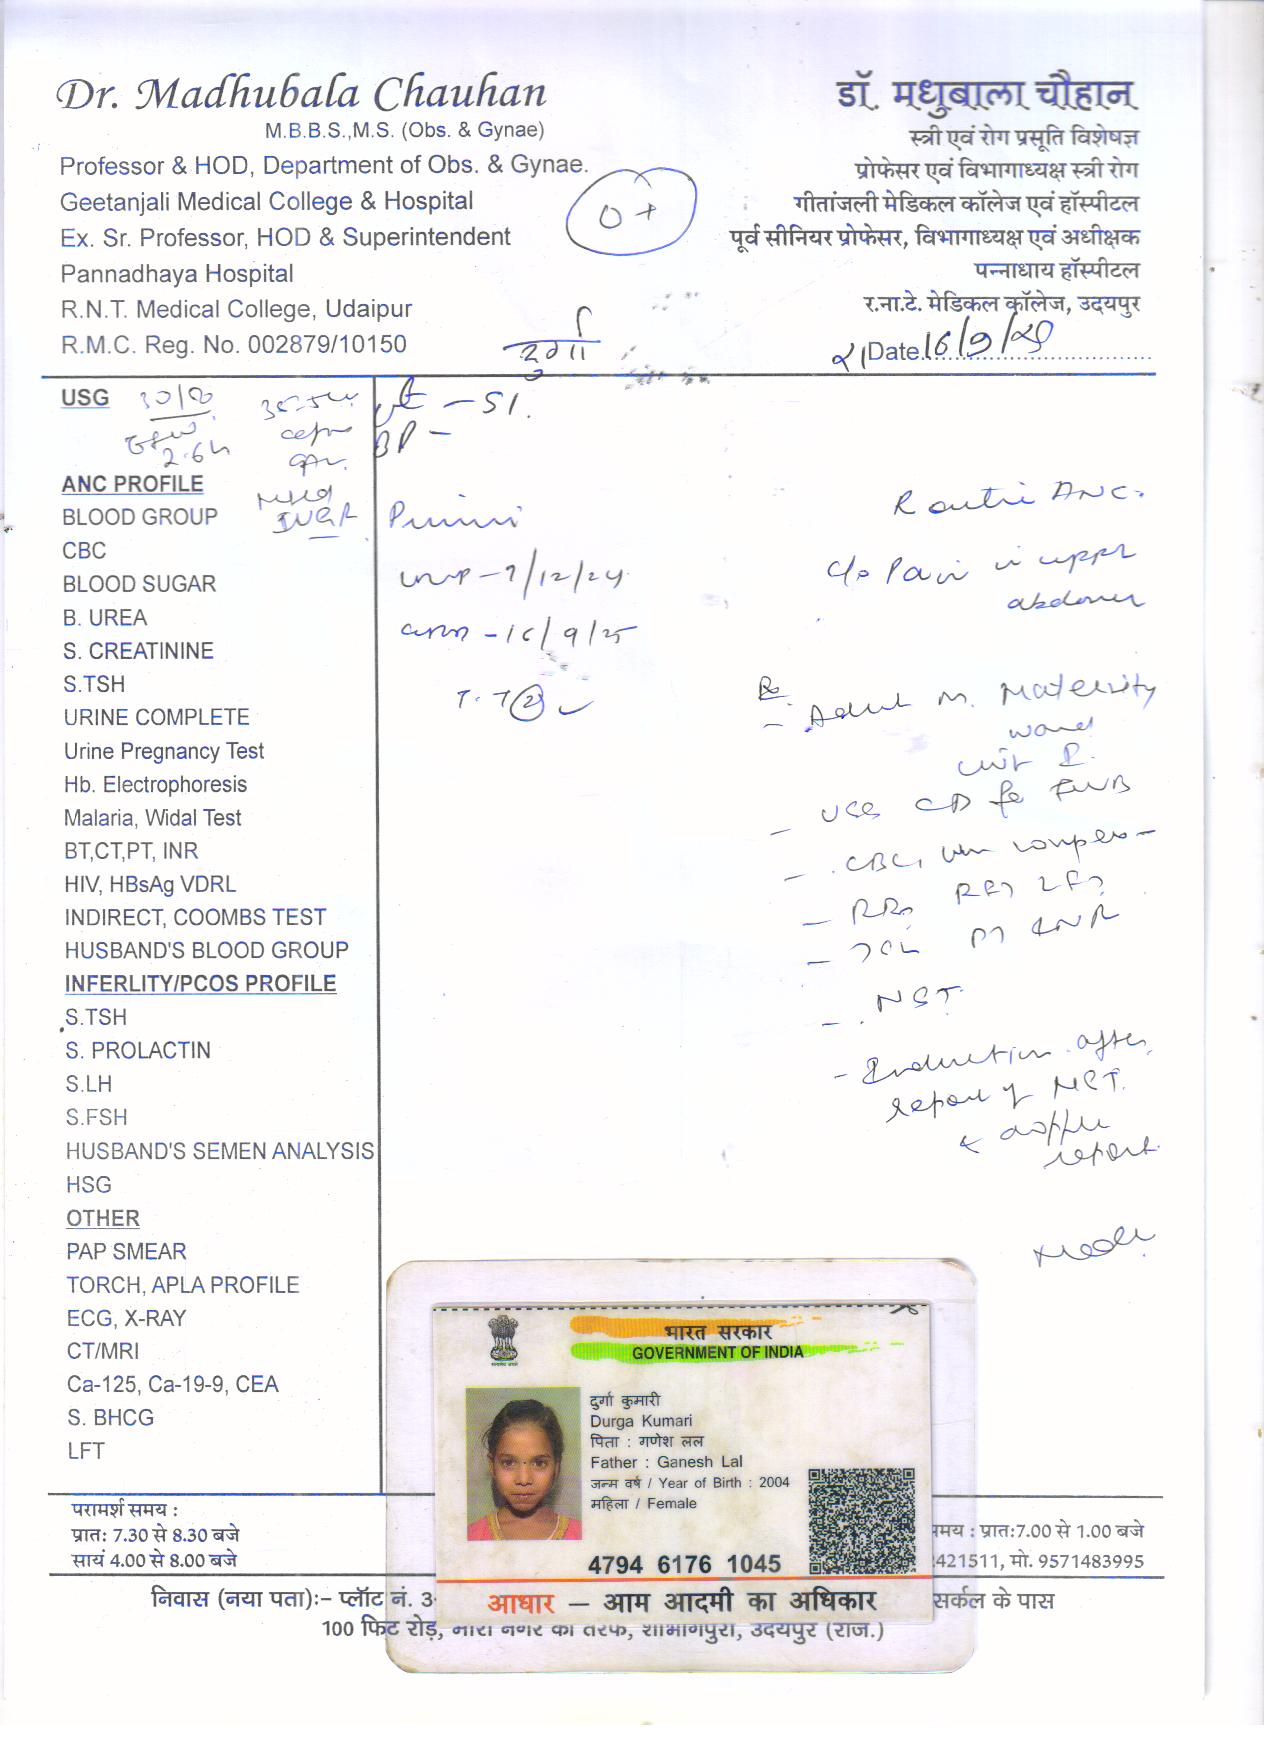 Dr. Madhubala Chauhan
M.B.B.S.,M.S. (Obs. & Gynae)
Professor & HOD, Department of Obs. & Gynae.
Geetanjali Medical College & Hospital
Ex. Sr. Professor, HOD & Superintendent
Pannadhaya Hospital
R.N.T. Medical College, Udaipur
R.M.C. Reg. No. 002879/10150
O +
दुर्गा
डॉ. मधुबाला चौहान
स्त्री एवं रोग प्रसूति विशेषज्ञ
प्रोफेसर एवं विभागाध्यक्ष स्त्री रोग
गीतांजली मेडिकल कॉलेज एवं हॉस्पीटल
पूर्व सीनियर प्रोफेसर, विभागाध्यक्ष एवं अधीक्षक
पन्नाधाय हॉस्पीटल
र.ना.टे. मेडिकल कॉलेज, उदयपुर
Date 16/9/25
USG 30/8
2.6
ANC PROFILE
BLOOD GROUP
IUGR
CBC
BLOOD SUGAR
B. UREA
S. CREATININE
S.TSH
URINE COMPLETE
Urine Pregnancy Test
Hb. Electrophoresis
Malaria, Widal Test
BT,CT,PT, INR
HIV, HBsAg VDRL
INDIRECT, COOMBS TEST
HUSBAND'S BLOOD GROUP
INFERLITY/PCOS PROFILE
S.TSH
S. PROLACTIN
S.LH
S.FSH
HUSBAND'S SEMEN ANALYSIS
HSG
OTHER
PAP SMEAR
TORCH, APLA PROFILE
ECG, X-RAY
CT/MRI
Ca-125, Ca-19-9, CEA
S. BHCG
LFT
wt - 51.
BP -
Primi
LMP - 9/12/24
EDD - 16/9/25
T.T (2)
Routine ANC.
c/o Pain in upper
abdomen
Rx
- Admit in Maternity
ward
unit
- USG CD for FWB
- CBC, urine complete
- RBS RFT LFT
- PT INR
- NST.
- Induction after
report of NST.
& doppler
report.
भारत सरकार
GOVERNMENT OF INDIA
दुर्गा कुमारी
Durga Kumari
पिता : गणेश लल
Father : Ganesh Lal
जन्म वर्ष / Year of Birth : 2004
महिला / Female
4794 6176 1045
आधार – आम आदमी का अधिकार
परामर्श समय :
प्रातः 7.30 से 8.30 बजे
सायं 4.00 से 8.00 बजे
मय : प्रातः7.00 से 1.00 बजे
421511, मो. 9571483995
निवास (नया पता):- प्लॉट नं. 3- सर्कल के पास
100 फिट रोड़, शोभागपुरा, उदयपुर (राज.)